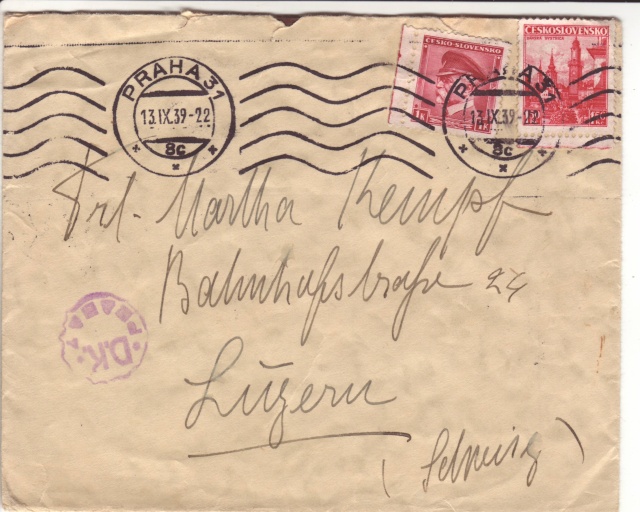 PRAHA 31
13.IX.39-22
8c
ČESKO-SLOVENSKO
1K
ČESKOSLOVENSKO
BAŇSKÁ BYSTRICA
PRAHA 31
13.IX.39-22
8c
Frl. Martha Kempf
Bahnhofstraße 24
Luzern
(Schweiz)
D.K.
PRAHA